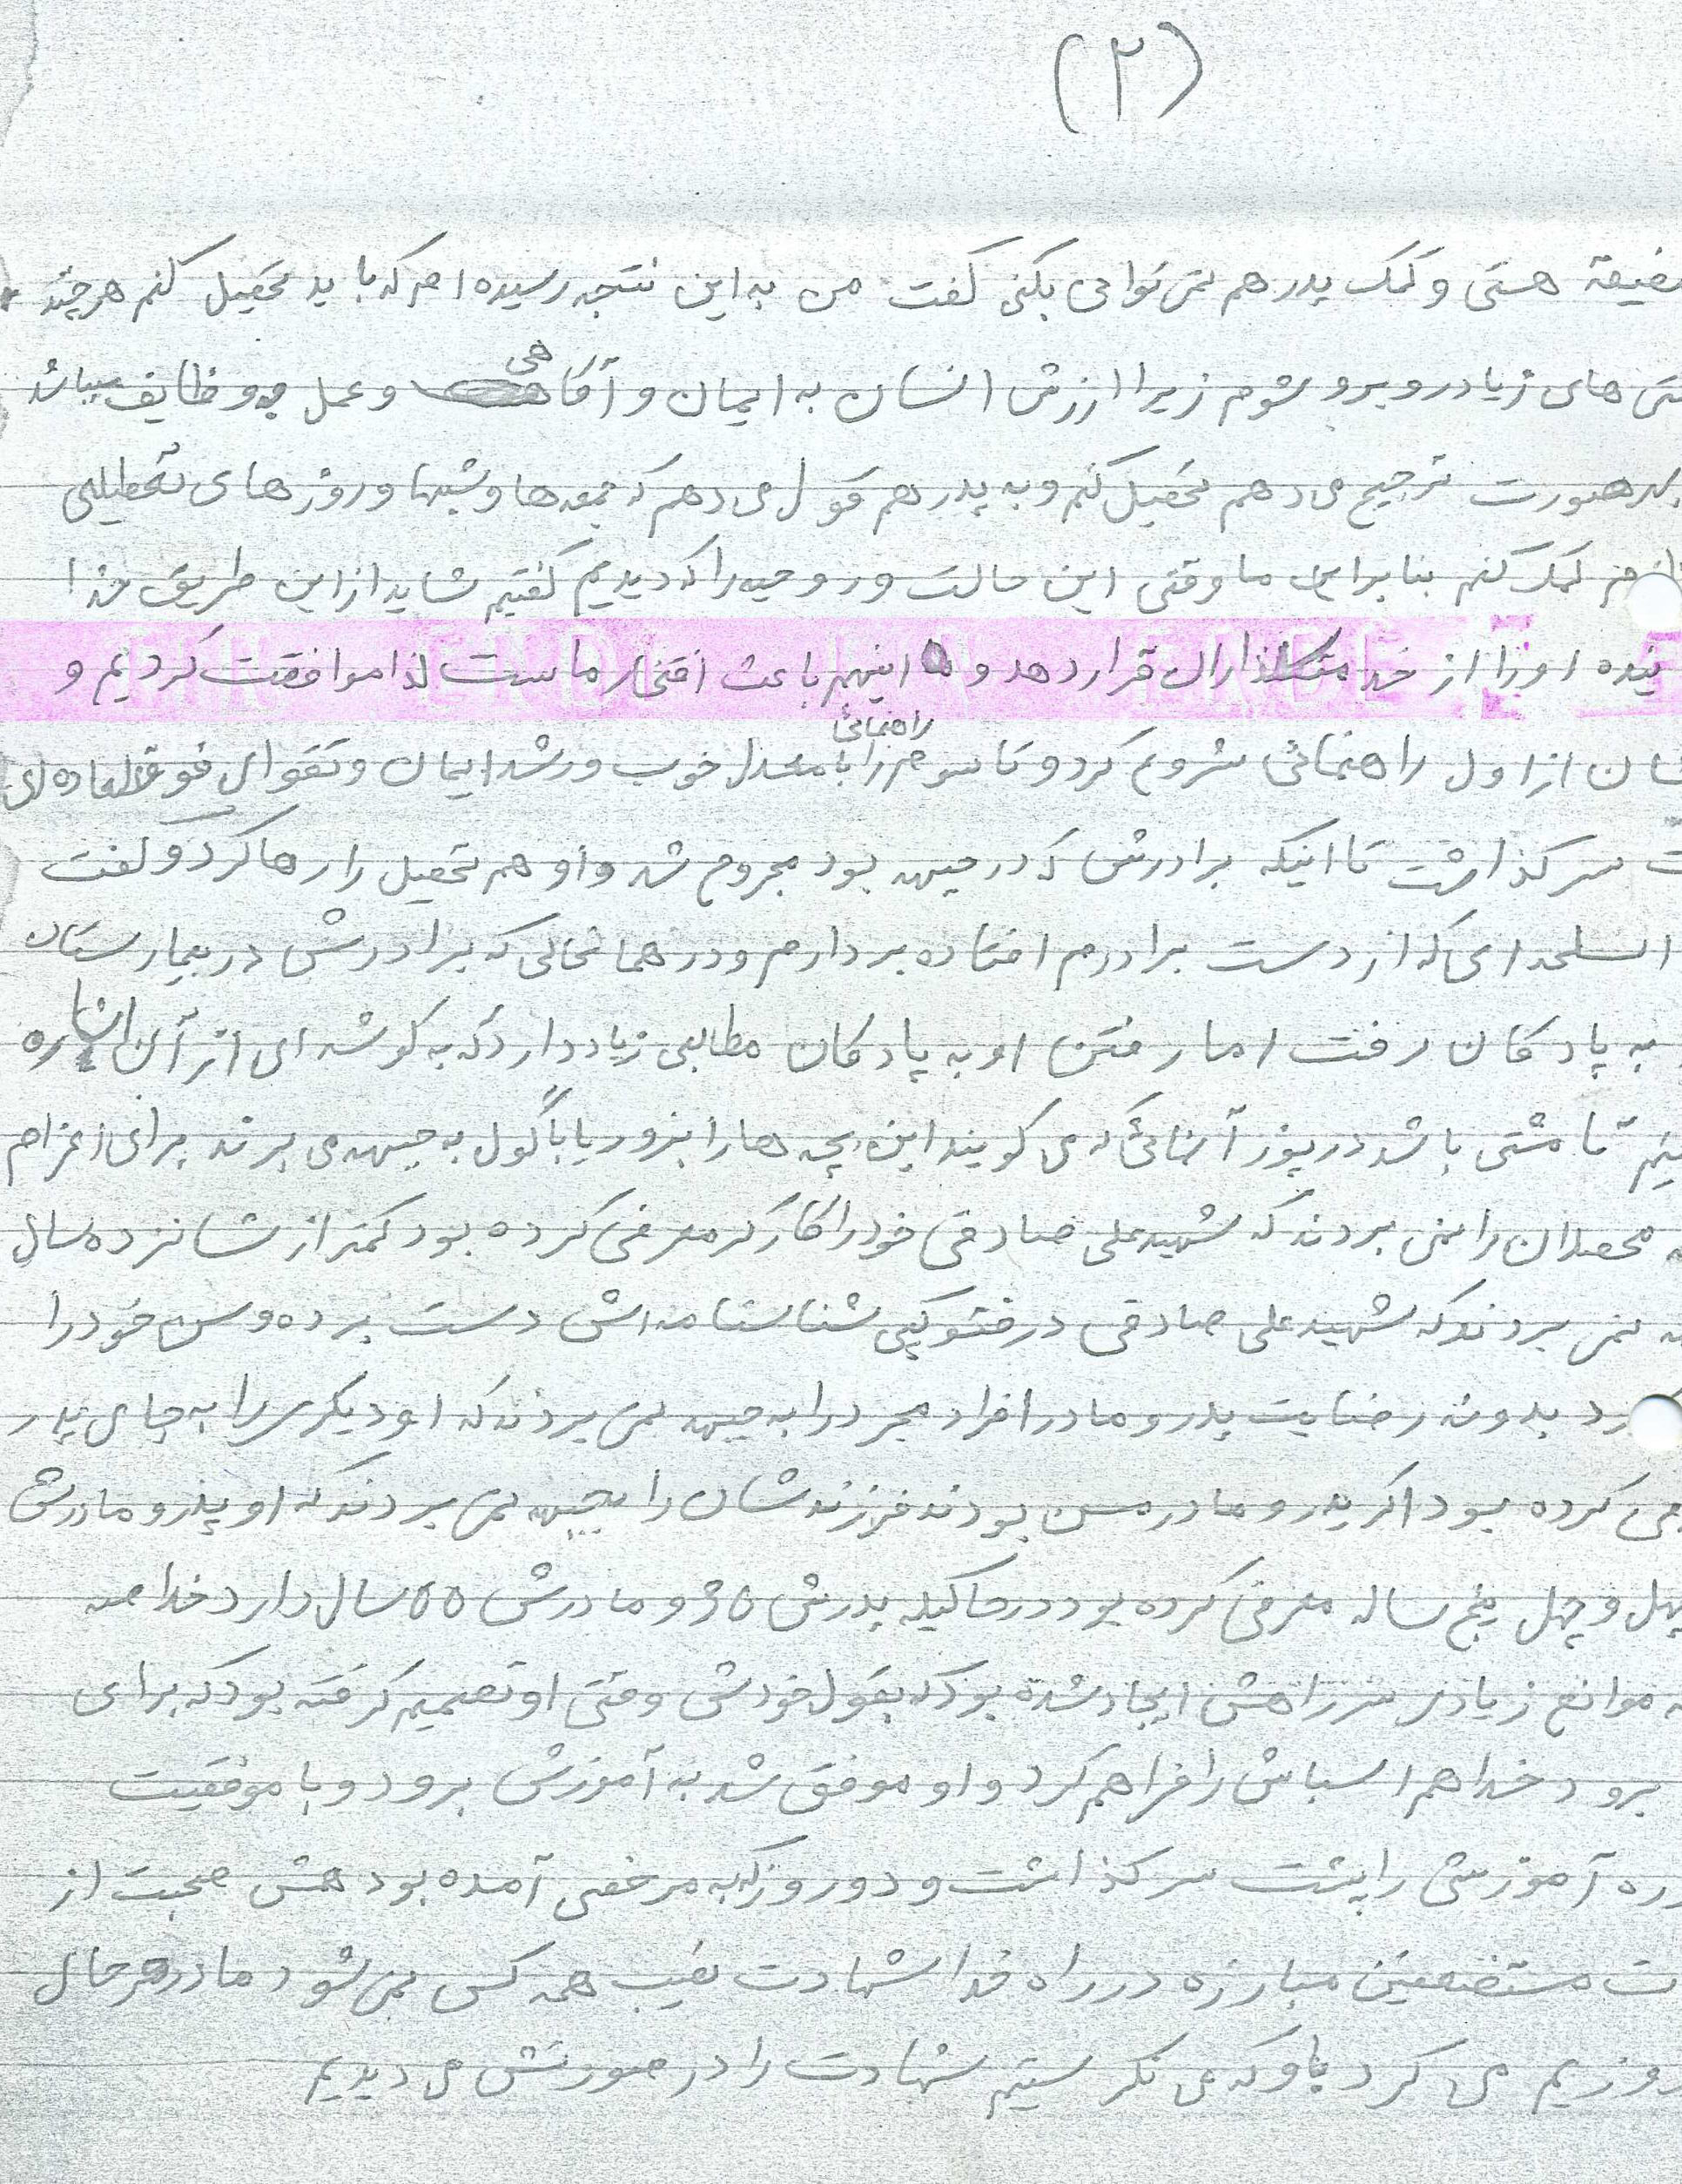 (۲)
مضیقه هستی و کمک پدر هم نمی توانی بکنی گفت من به این نتیجه رسیده ام که باید تحصیل کنم هر چند
های زیاد روبرو شوم زیرا ارزش انسان به ایمان و آگاهی و عمل به وظایف میباشد
بهر صورت ترجیح می دهم تحصیل کنم و به پدر هم قول می دهم که جمعه ها و شبها و روزهای تعطیلی
هم کمک کنم بنابراین ما وقتی این حالت و روحیه را که دیدیم گفتیم شاید از این طریق خدا
او را از خدمتگذاران قرار دهد و اینهم باعث افتخار ماست لذا موافقت کردیم و
ایشان از اول راهنمائی شروع کرد و تا سوم راهنمائی را با معدل خوب و رشد ایمان و تقوای فوق العاده ای
سر گذاشت تا اینکه برادرش که در جبهه بود مجروح شد و او هم تحصیل را رها کرد و گفت
اسلحه ای که از دست برادرم افتاده بردارم و در همانحالی که برادرش در بیمارستان
به پادگان رفت اما رفتن او به پادگان مطالبی زیاد دارد که به گوشه ای از آن اشاره
تا مشتی باشد در پوز آنهائی که می گویند این بچه ها را بزور یا با گول به جبهه می برند برای اعزام
محصلان را نمی بردند که شهید علی صادقی خود را کارگر معرفی کرده بود کمتر از شانزده سال
نمی بردند که شهید علی صادقی در فتوکپی شناسنامه اش دست برده و سن خود را
بدون رضایت پدر و مادر افراد مجرد را به جبهه نمی بردند که او دیگری را به جای پدر
کرده بود اگر پدر و مادر مسن بودند فرزندشان را بجبهه نمی بردند که او پدر و مادرش
چهل و چهل پنج ساله معرفی کرده بود در حالیکه پدرش ۶۵ و مادرش ۵۵ سال دارد خلاصه
موانع زیادی سر راهش ایجاد شده بود که بقول خودش وقتی او تصمیم گرفته بود که برای
برود خدا هم اسبابش را فراهم کرد و او موفق شد به آموزش برود و با موفقیت
دوره آموزشی را پشت سر گذاشت و دو روز که به مرخصی آمده بود همش صحبت از
مستضعفین مبارزه در راه خدا شهادت نصیب همه کس نمی شود ما در هر حال
می کرد باو که می نگریستیم شهادت را در صورتش می دیدیم